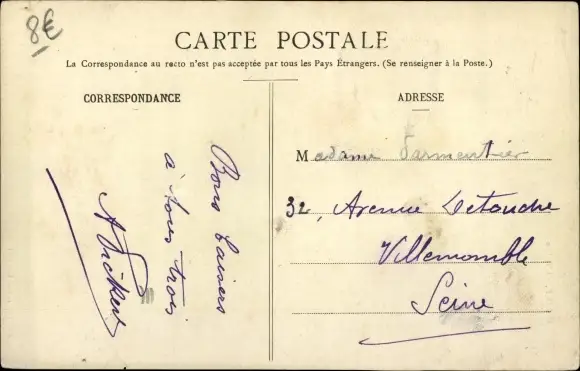 8€
CARTE POSTALE
La Correspondance au recto n'est pas acceptée par tous les Pays Étrangers. (Se renseigner à la Poste.)
CORRESPONDANCE
Bons baisers
à tous trois
ADRESSE
Madame Parmentier
32, Avenue Detouche
Villemomble
Seine